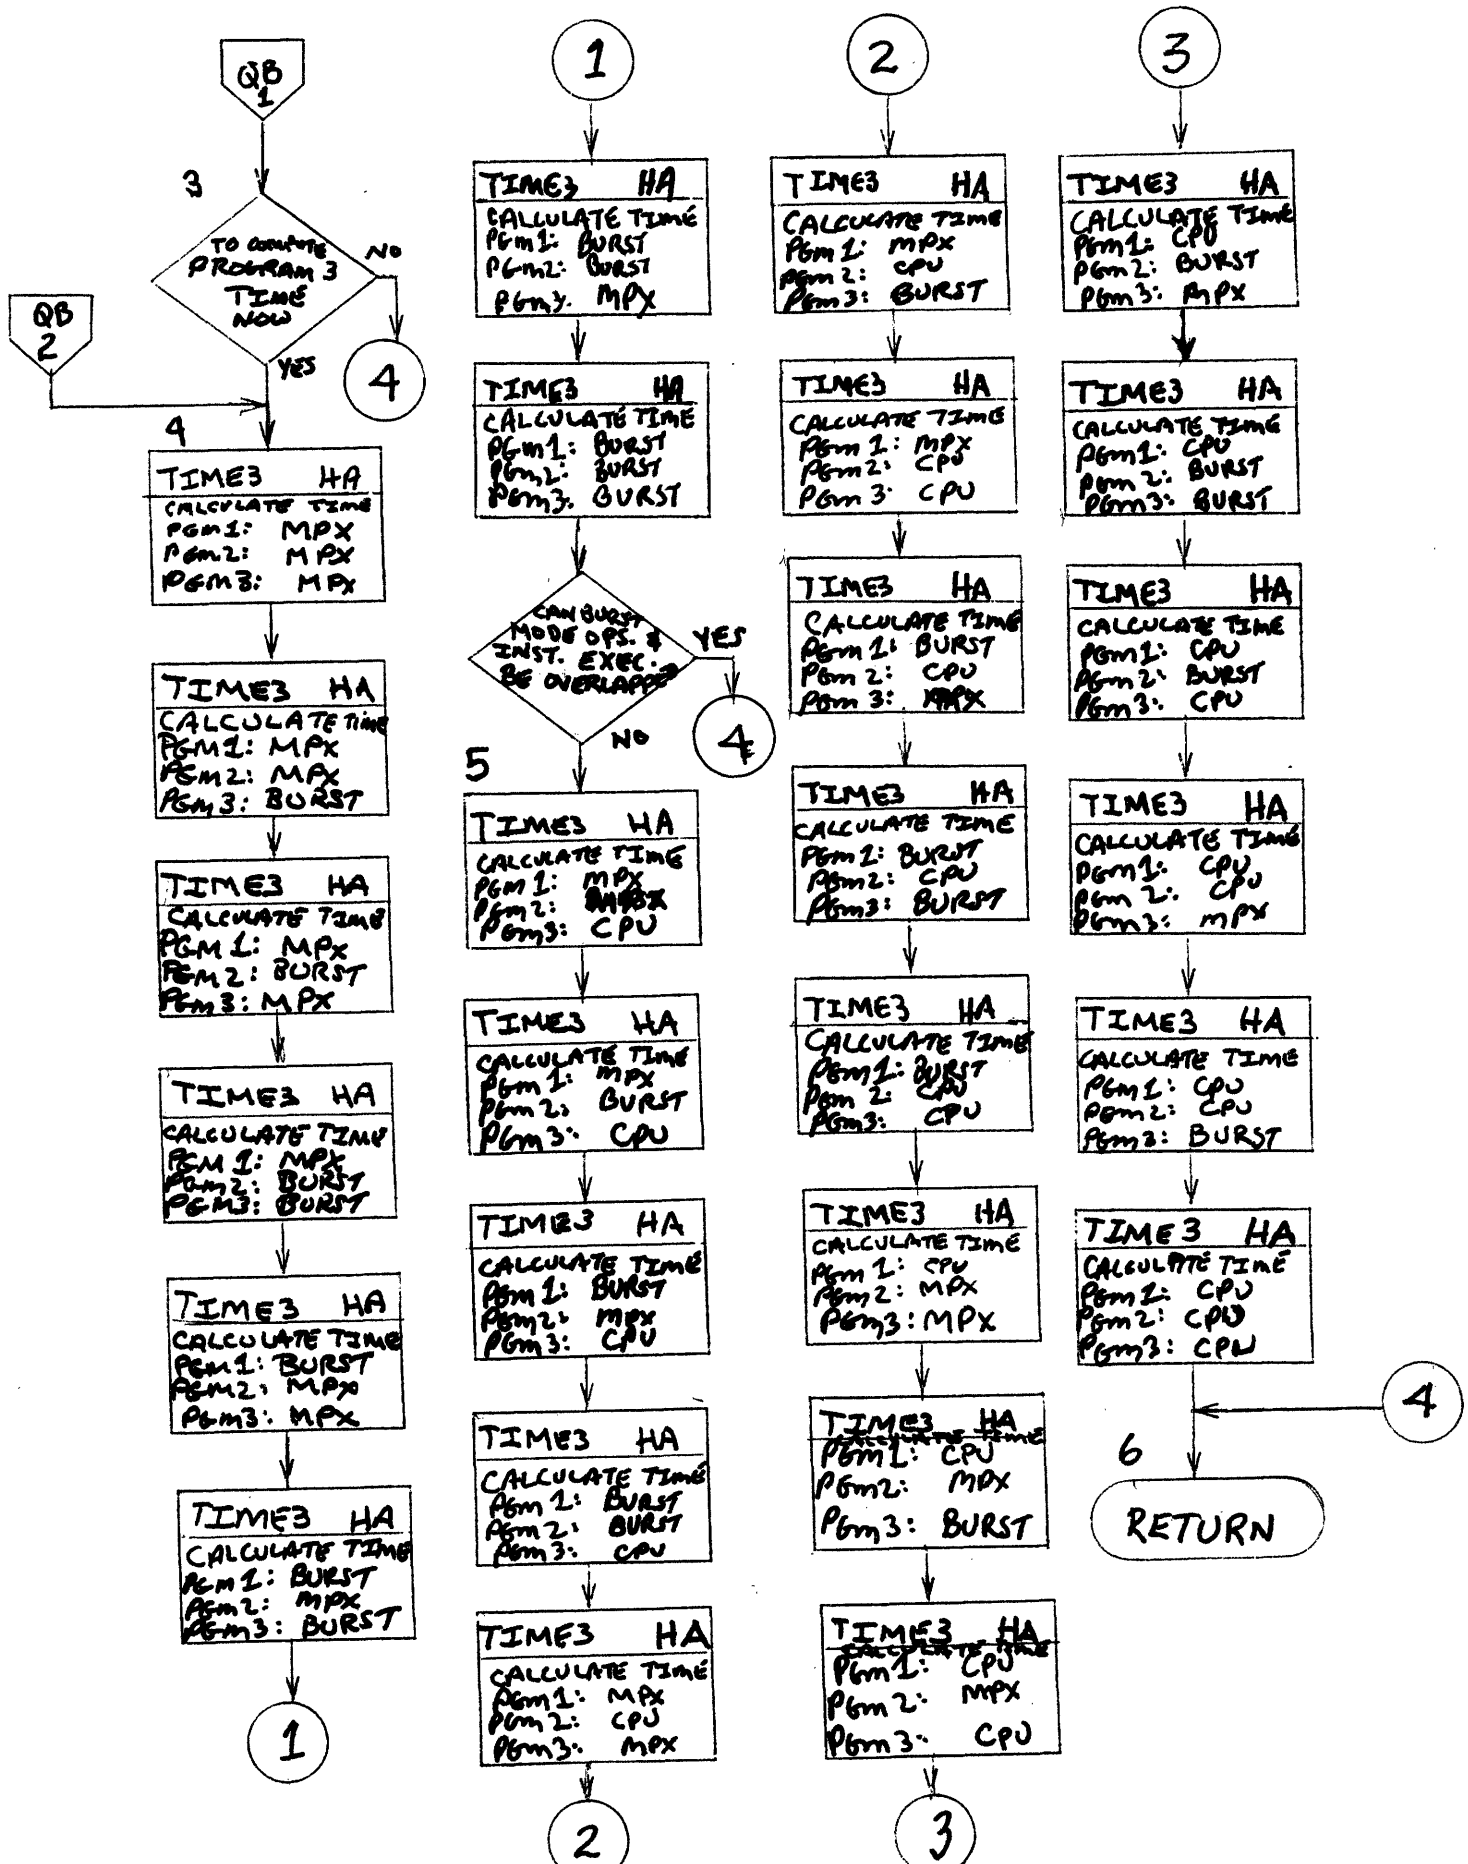 QB
1
3
TO COMPUTE
PROGRAM 3
TIME
NOW
NO
4
YES
QB
2
4
TIME3 HA
CALCULATE TIME
PGM1: MPX
PGM2: MPX
PGM3: MPX
TIME3 HA
CALCULATE TIME
PGM1: MPX
PGM2: MPX
PGM3: BURST
TIME3 HA
CALCULATE TIME
PGM1: MPX
PGM2: BURST
PGM3: MPX
TIME3 HA
CALCULATE TIME
PGM1: MPX
PGM2: BURST
PGM3: BURST
TIME3 HA
CALCULATE TIME
PGM1: BURST
PGM2: MPX
PGM3: MPX
TIME3 HA
CALCULATE TIME
PGM1: BURST
PGM2: MPX
PGM3: BURST
1
1
TIME3 HA
CALCULATE TIME
PGM1: BURST
PGM2: BURST
PGM3: MPX
TIME3 HA
CALCULATE TIME
PGM1: BURST
PGM2: BURST
PGM3: BURST
CAN BURST
MODE OPS. &
INST. EXEC.
BE OVERLAPPED
YES
4
NO
5
TIME3 HA
CALCULATE TIME
PGM1: MPX
PGM2:
PGM3: CPU
TIME3 HA
CALCULATE TIME
PGM1: MPX
PGM2: BURST
PGM3: CPU
TIME3 HA
CALCULATE TIME
PGM1: BURST
PGM2: MPX
PGM3: CPU
TIME3 HA
CALCULATE TIME
PGM1: BURST
PGM2: BURST
PGM3: CPU
TIME3 HA
CALCULATE TIME
PGM1: MPX
PGM2: CPU
PGM3: MPX
2
2
TIME3 HA
CALCULATE TIME
PGM1: MPX
PGM2: CPU
PGM3: BURST
TIME3 HA
CALCULATE TIME
PGM1: MPX
PGM2: CPU
PGM3: CPU
TIME3 HA
CALCULATE TIME
PGM1: BURST
PGM2: CPU
PGM3: MPX
TIME3 HA
CALCULATE TIME
PGM1: BURST
PGM2: CPU
PGM3: BURST
TIME3 HA
CALCULATE TIME
PGM1: BURST
PGM2: CPU
PGM3: CPU
TIME3 HA
CALCULATE TIME
PGM1: CPU
PGM2: MPX
PGM3: MPX
TIME3 HA
CALCULATE TIME
PGM1: CPU
PGM2: MPX
PGM3: BURST
TIME3 HA
CALCULATE TIME
PGM1: CPU
PGM2: MPX
PGM3: CPU
3
3
TIME3 HA
CALCULATE TIME
PGM1: CPU
PGM2: BURST
PGM3: MPX
TIME3 HA
CALCULATE TIME
PGM1: CPU
PGM2: BURST
PGM3: BURST
TIME3 HA
CALCULATE TIME
PGM1: CPU
PGM2: BURST
PGM3: CPU
TIME3 HA
CALCULATE TIME
PGM1: CPU
PGM2: CPU
PGM3: MPX
TIME3 HA
CALCULATE TIME
PGM1: CPU
PGM2: CPU
PGM3: BURST
TIME3 HA
CALCULATE TIME
PGM1: CPU
PGM2: CPU
PGM3: CPU
4
6
RETURN